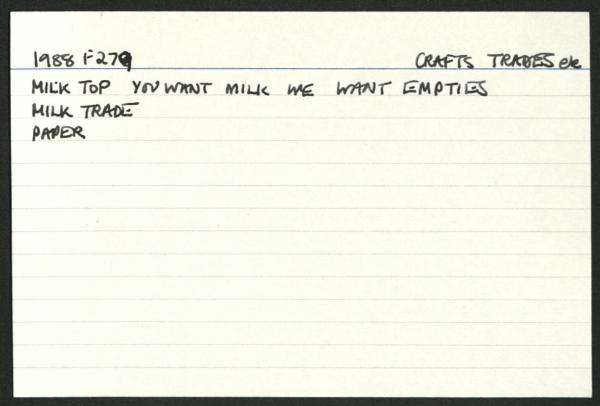 1988 F279 CRAFTS TRADES etc
MILK TOP YOU WANT MILK WE WANT EMPTIES
MILK TRADE
PAPER